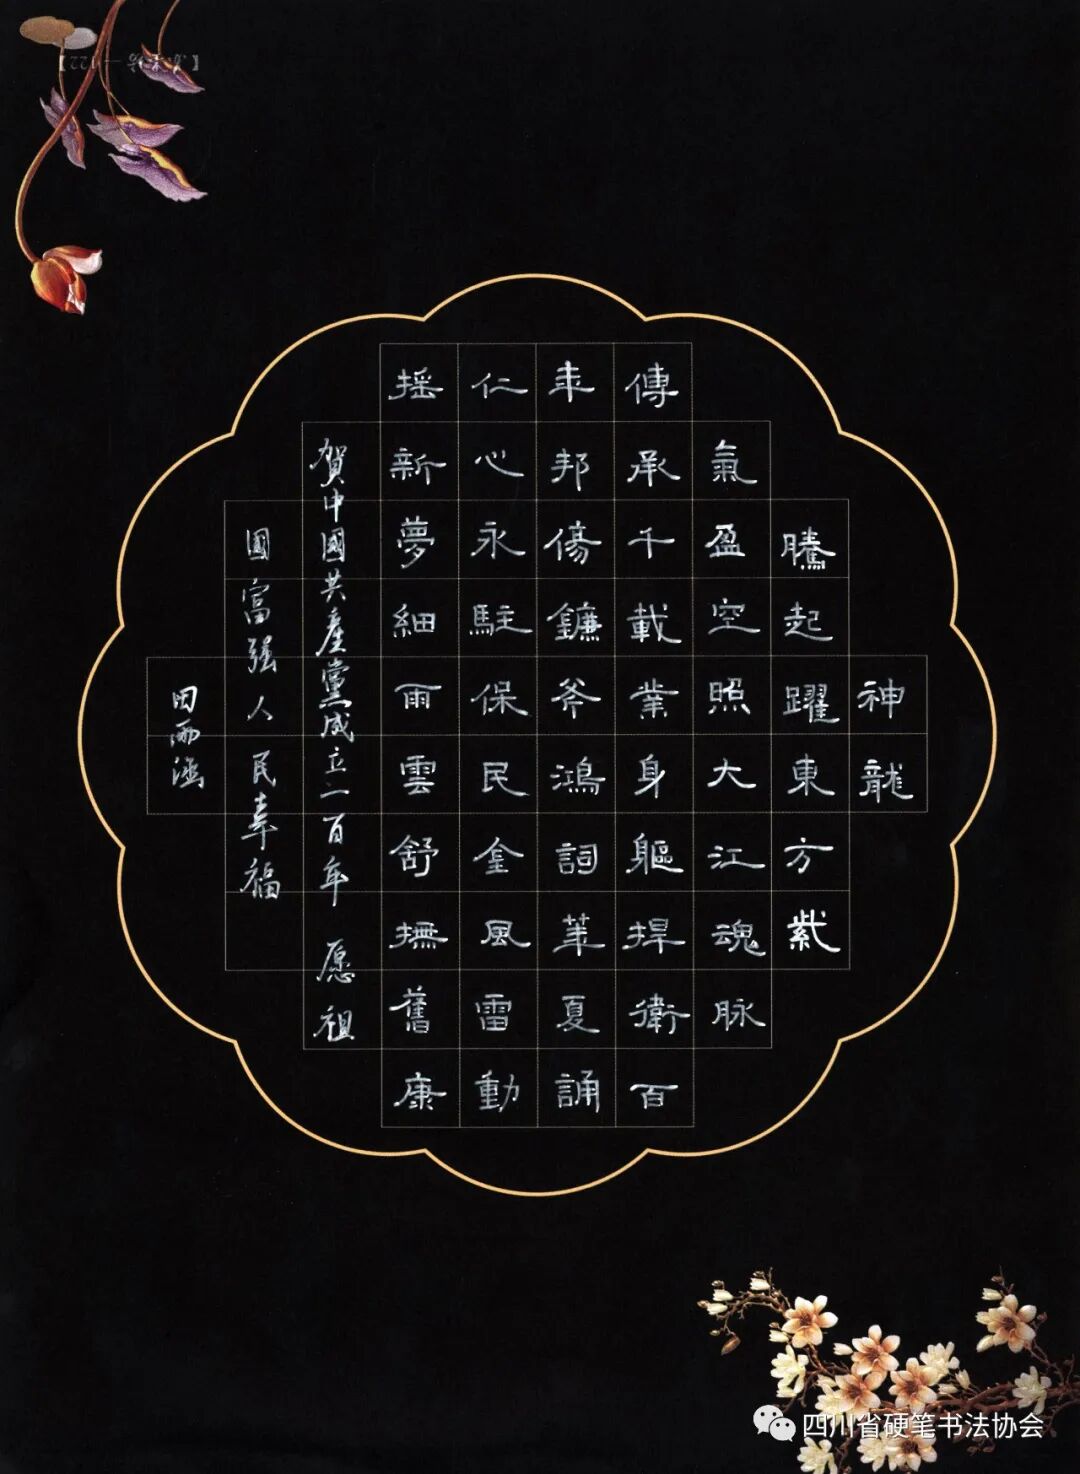 神龍
騰起躍東方紫
氣盈空照大江魂脉
傳承千載業身軀捍衛百
年邦傍鐮斧鴻詞華夏誦
仁心永駐保民金風雷動
搖新夢細雨雲舒撫舊康
賀中國共產黨成立一百年 愿祖
國富强人民幸福
田雨涵
四川省硬笔书法协会